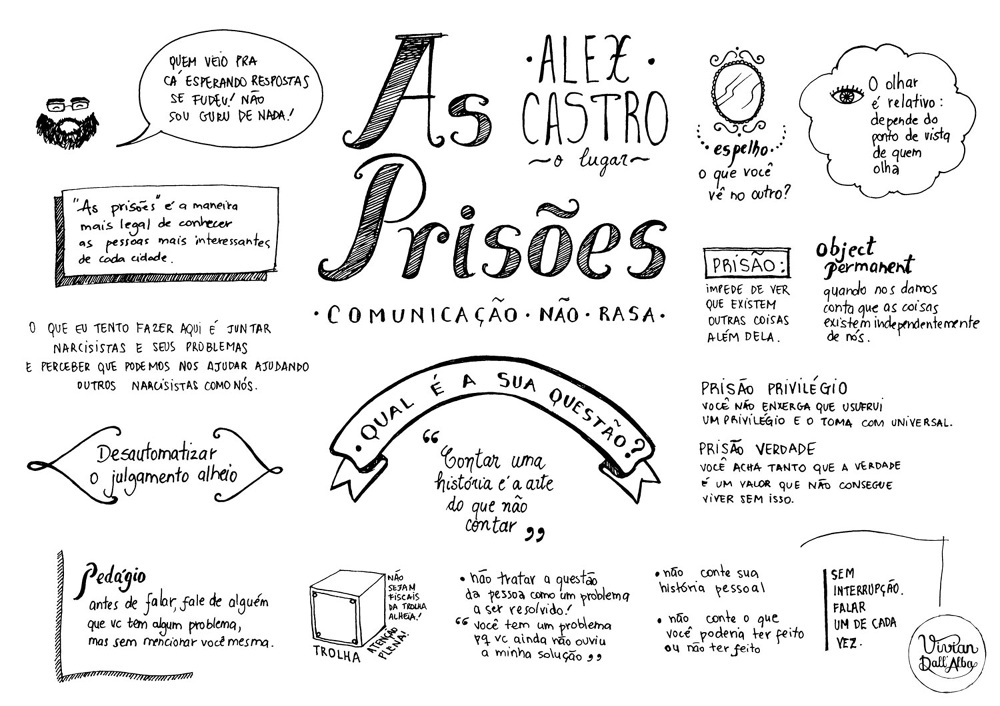 QUEM VEIO PRA
CÁ ESPERANDO RESPOSTAS
SE FUDEU! NÃO
SOU GURU DE NADA!
As
Prisões
·ALEX·
CASTRO
~o lugar~
·COMUNICAÇÃO·NÃO·RASA·
espelho
o que você
vê no outro?
O olhar
é relativo:
depende do
ponto de vista
de quem
olha
"As prisões" é a maneira
mais legal de conhecer
as pessoas mais interessantes
de cada cidade.
PRISÃO:
IMPEDE DE VER
QUE EXISTEM
OUTRAS COISAS
ALÉM DELA.
Object
permanent
quando nos damos
conta que as coisas
existem independentemente
de nós.
O QUE EU TENTO FAZER AQUI É JUNTAR
NARCISISTAS E SEUS PROBLEMAS
E PERCEBER QUE PODEMOS NOS AJUDAR AJUDANDO
OUTROS NARCISISTAS COMO NÓS.
·QUAL É A SUA QUESTÃO?
"Contar uma
história é a arte
do que não
contar"
PRISÃO PRIVILÉGIO
VOCÊ NÃO ENXERGA QUE USUFRUI
UM PRIVILÉGIO E O TOMA COM UNIVERSAL.
PRISÃO VERDADE
VOCÊ ACHA TANTO QUE A VERDADE
É UM VALOR QUE NÃO CONSEGUE
VIVER SEM ISSO.
Desautomatizar
o julgamento alheio
Pedágio
antes de falar, fale de alguém
que vc tem algum problema,
mas sem mencionar você mesma.
NÃO
SEJAM
FISCAIS
DA TROLHA
ALHEIA!
ATENÇÃO
PLENA!
TROLHA
• não tratar a questão
da pessoa como um problema
a ser resolvido!
"você tem um problema
pq vc ainda não ouviu
a minha solução"
• não conte sua
história pessoal
• não conte o que
você poderia ter feito
ou não ter feito
SEM
INTERRUPÇÃO.
FALAR
UM DE CADA
VEZ.
Vivian
Dall'Alba